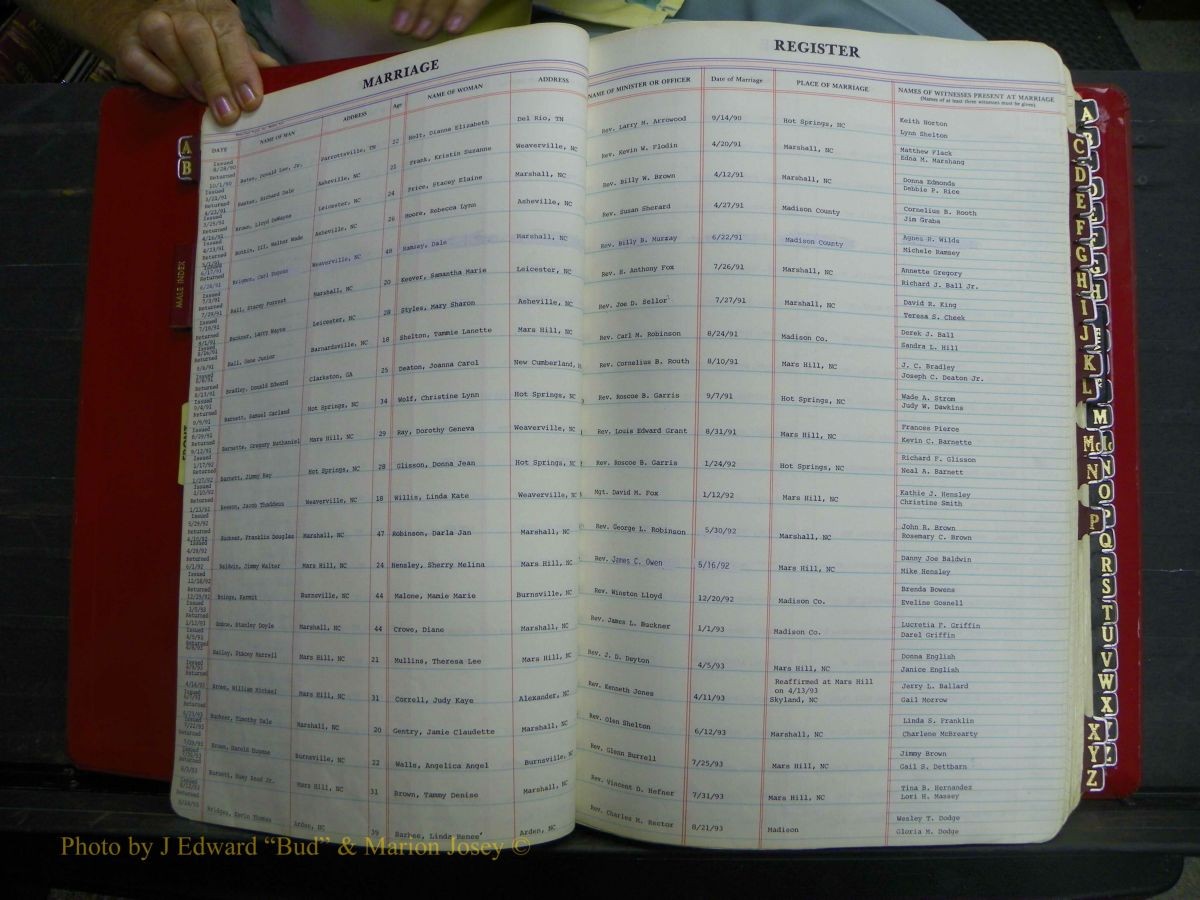 MARRIAGE
DATE NAME OF MAN ADDRESS Age NAME OF WOMAN ADDRESS
Issued 8/28/90 Returned 10/1/90 Bates, Donald Lee, Jr. Parrottsville, TN 22 Holt, Dianna Elizabeth Del Rio, TN
Issued Returned 4/23/91 Baxter, Richard Dale Asheville, NC 21 Frank, Kristin Suzanne Weaverville, NC
Issued 3/25/91 Returned 4/16/91 Brown, Lloyd DeWayne Leicester, NC 24 Price, Stacey Elaine Marshall, NC
Issued 4/23/91 Returned Botkin, III, Walter Wade Asheville, NC 26 Moore, Rebecca Lynn Asheville, NC
Issued 6/17/91 Returned 6/28/91 Carl Eugene Weaverville, NC 48 Ramsey, Dale Marshall, NC
Issued 7/3/91 Returned 7/29/91 Ball, Stacey Forrest Marshall, NC 20 Keever, Samantha Marie Leicester, NC
Issued 7/10/91 Returned 8/1/91 Buckner, Larry Wayne Leicester, NC 28 Styles, Mary Sharon Asheville, NC
Returned Ball, Gene Junior Barnardsville, NC 18 Shelton, Tammie Lanette Mars Hill, NC
Returned 8/13/91 Bradley, Donald Edward Clarkston, GA 25 Deaton, Joanna Carol New Cumberland,
Issued 9/4/91 Returned 9/9/91 Barnett, Samuel Garland Hot Springs, NC 34 Wolf, Christine Lynn Hot Springs, NC
Issued 8/29/91 Returned 9/12/91 Barnette, Gregory Nathaniel Mars Hill, NC 29 Ray, Dorothy Geneva Weaverville, NC
Issued 1/17/92 Returned 1/27/92 Barnett, Jimmy Ray Hot Springs, NC 28 Glisson, Donna Jean Hot Springs, NC
Issued 1/10/92 Returned 1/23/92 Beeson, Jacob Thaddeus Weaverville, NC 18 Willis, Linda Kate Weaverville, NC
Issued 5/29/92 Returned Buckner, Franklin Douglas Marshall, NC 47 Robinson, Darla Jan Marshall, NC
Issued 4/28/92 Returned 6/1/92 Baldwin, Jimmy Walter Mars Hill, NC 24 Hensley, Sherry Melina Mars Hill, NC
Issued 12/18/92 Returned 12/29/92 Boings, Kermit Burnsville, NC 44 Malone, Mamie Marie Burnsville, NC
Issued Returned 1/12/93 Goose, Stanley Doyle Marshall, NC 44 Crowe, Diane Marshall, NC
Issued Returned Bailey, Stacey Harrell Mars Hill, NC 21 Mullins, Theresa Lee Mars Hill, NC
Issued Returned 4/16/93 Brown, William Michael Mars Hill, NC 31 Correll, Judy Kaye Alexander, NC
Issued Returned 6/23/93 Buckner, Timothy Dale Marshall, NC 20 Gentry, Jamie Claudette Marshall, NC
Issued 7/22/93 Returned 7/29/93 Brown, Harold Eugene Burnsville, NC 22 Walls, Angelica Angel Burnsville, NC
Issued Returned 8/3/93 Burnett, Jr. Mars Hill, NC 31 Brown, Tammy Denise Marshall, NC
Issued Returned 8/24/93 Bridges, Kevin Thomas Arden, NC 39 Barbee, Linda Renee' Arden, NC
REGISTER
NAME OF MINISTER OR OFFICER Date of Marriage PLACE OF MARRIAGE NAMES OF WITNESSES PRESENT AT MARRIAGE
(Names of at least three witnesses must be given)
Rev. Larry M. Arrowood 9/14/90 Hot Springs, NC Keith Horton
Lynn Shelton
Rev. Kevin W. Flodin 4/20/91 Marshall, NC Matthew Flack
Edna M. Marshang
Rev. Billy W. Brown 4/12/91 Marshall, NC Donna Edmonds
Debbie P. Rice
Rev. Susan Sherard 4/27/91 Madison County Cornelius B. Rooth
Jim Graba
Rev. Billy B. Murray 6/22/91 Madison County Agnes H. Wilds
Michele Ramsey
Rev. H. Anthony Fox 7/26/91 Marshall, NC Annette Gregory
Richard J. Ball Jr.
Rev. Joe D. Sellor 7/27/91 Marshall, NC David R. King
Teresa S. Cheek
Rev. Carl M. Robinson 8/24/91 Madison Co. Derek J. Ball
Sandra L. Hill
Rev. Cornelius B. Routh 8/10/91 Mars Hill, NC J. C. Bradley
Joseph C. Deaton Jr.
Rev. Roscoe B. Garris 9/7/91 Hot Springs, NC Wade A. Strom
Judy W. Dawkins
Rev. Louis Edward Grant 8/31/91 Mars Hill, NC Frances Pierce
Kevin C. Barnette
Rev. Roscoe B. Garris 1/24/92 Hot Springs, NC Richard F. Glisson
Neal A. Barnett
Mgt. David M. Fox 1/12/92 Mars Hill, NC Kathie J. Hensley
Christine Smith
Rev. George L. Robinson 5/30/92 Marshall, NC John R. Brown
Rosemary C. Brown
Rev. James C. Owen 5/16/92 Mars Hill, NC Danny Joe Baldwin
Mike Hensley
Rev. Winston Lloyd 12/20/92 Madison Co. Brenda Bowens
Eveline Gosnell
Rev. James L. Buckner 1/1/93 Madison Co. Lucretia F. Griffin
Darel Griffin
Rev. J. D. Dayton 4/5/93 Mars Hill, NC Donna English
Janice English
Rev. Kenneth Jones 4/11/93 Reaffirmed at Mars Hill on 4/13/93 Skyland, NC Jerry L. Ballard
Gail Morrow
Rev. Olen Shelton 6/12/93 Marshall, NC Linda S. Franklin
Charlene McBrearty
Rev. Glenn Burrell 7/25/93 Mars Hill, NC Jimmy Brown
Gail S. Dettbarn
Rev. Vincent D. Hefner 7/31/93 Mars Hill, NC Tina B. Hernandez
Lori H. Massey
Rev. Charles M. Rector 8/21/93 Madison Wesley T. Dodge
Gloria M. Dodge
A
B
MALE INDEX
FRONT
A
C
D
E
F
G
H
I
J
K
L
M
Mc
N
O
P
Q
R
S
T
U
V
W
X
Y
Z
Photo by J Edward “Bud” & Marion Josey ©